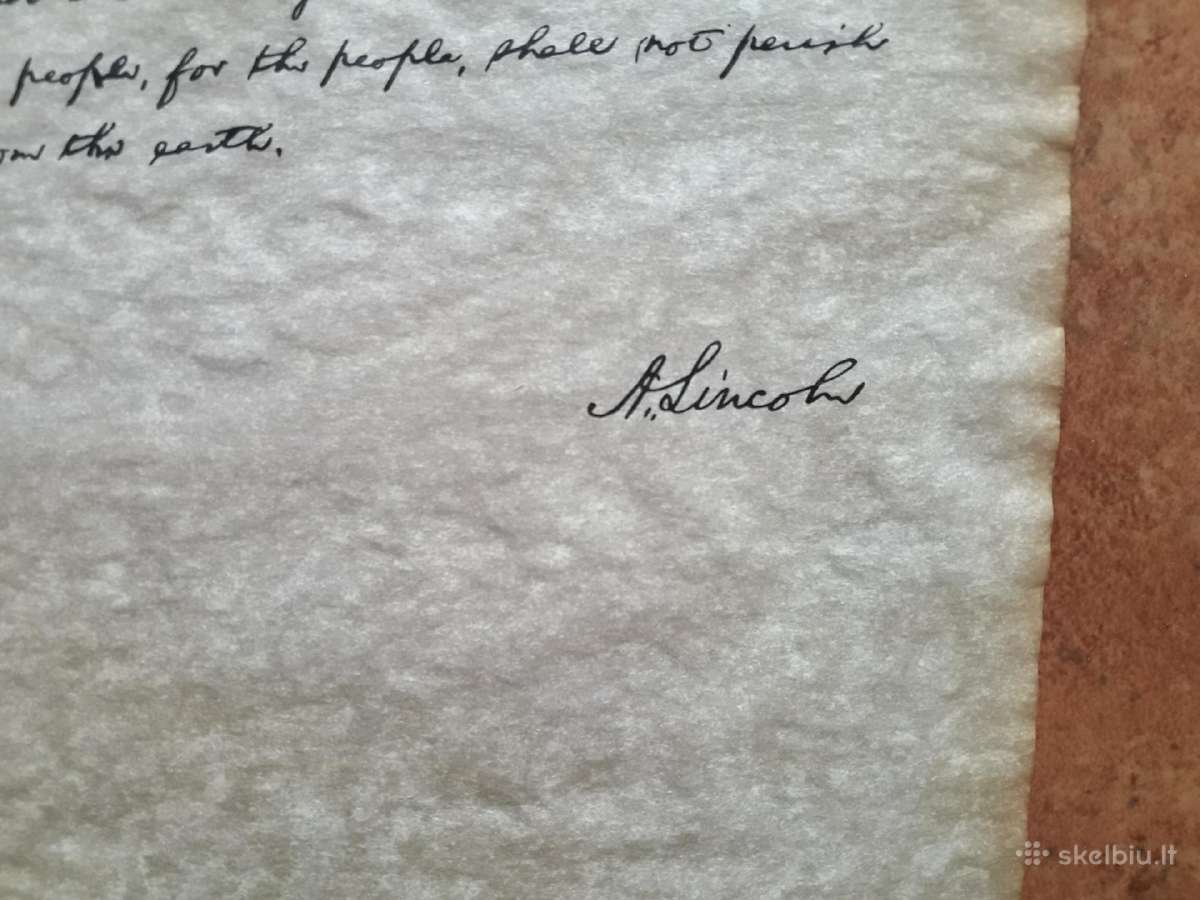 people, for the people, shall not perish
om the earth.
A. Lincoln
skelbiu.lt